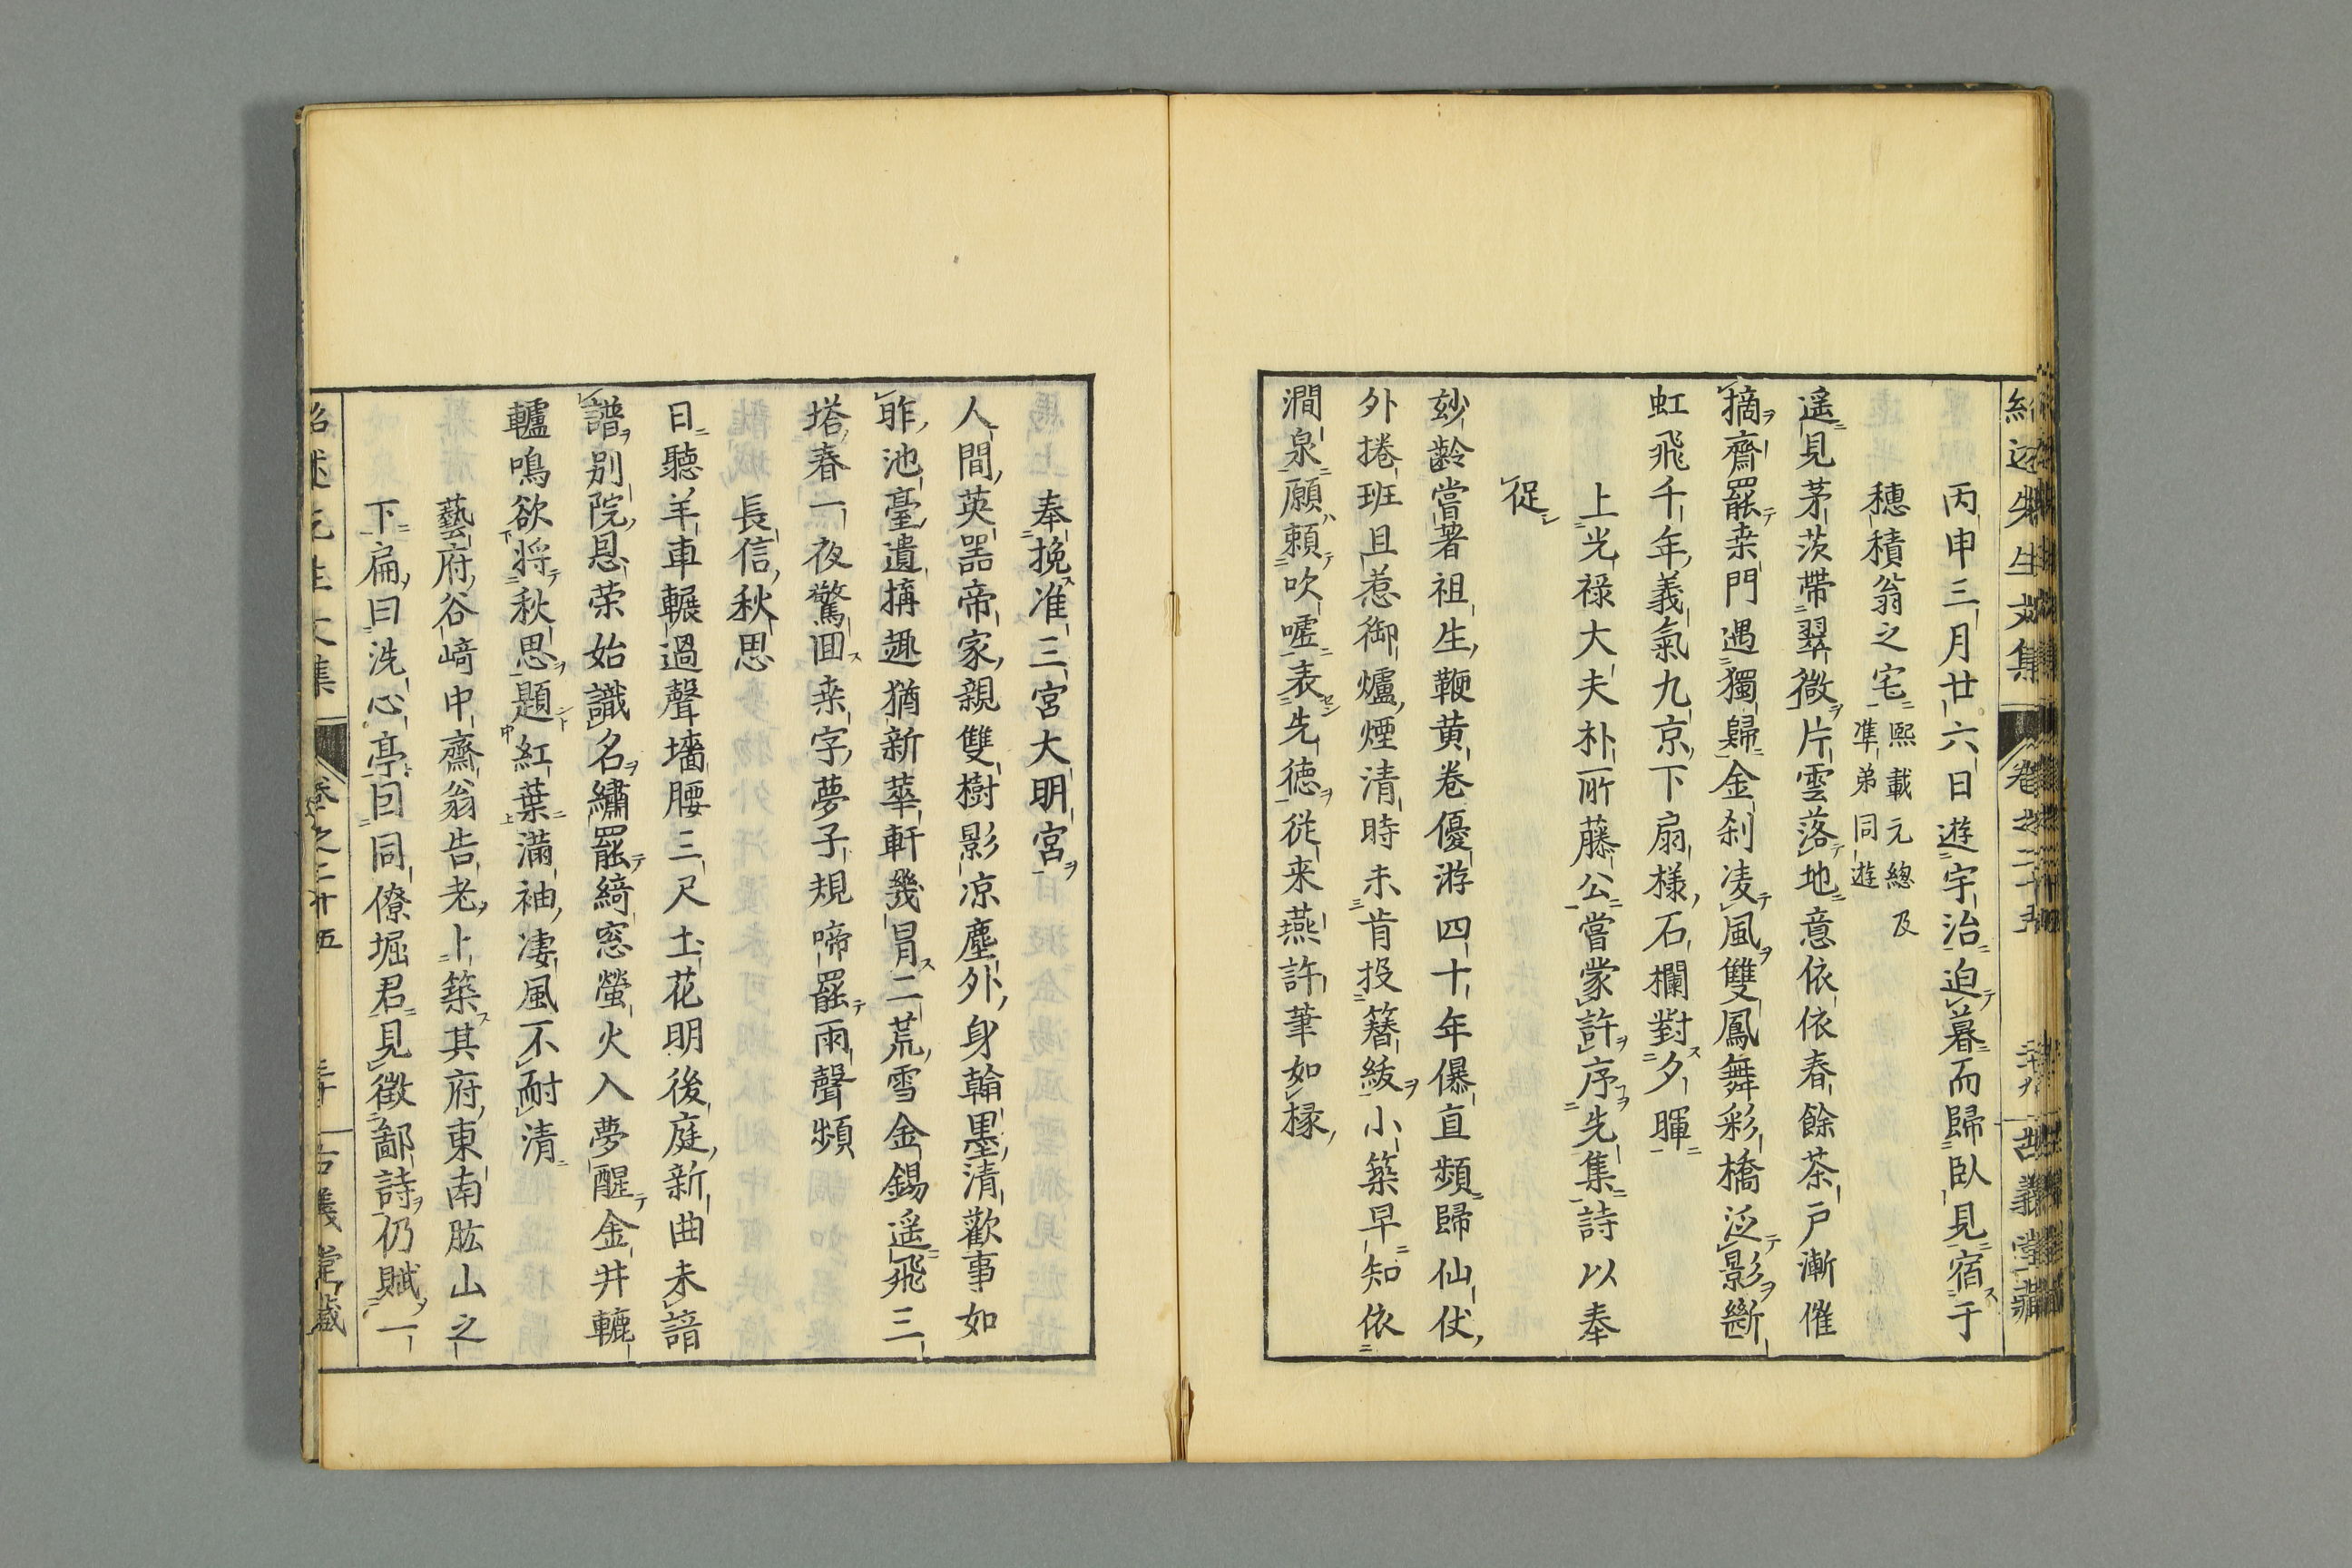 紹述先生文集 卷之二十五 二十九 古義堂藏
丙申三月廿六日遊宇治迫暮而歸臥見宿于
穗積翁之宅熙載元總及準弟同遊
遥見茅茨帶翠微片雲落地意依依春餘茶戸漸催
摘齋罷桒門遇獨歸金刹凌風雙鳳舞彩橋泛影斷
虹飛千年義氣九京下扇樣石欄對夕暉
上光禄大夫朴所藤公嘗蒙許序先集詩以奉
促
玅齡嘗著祖生鞭黄卷優游四十年儤直頻歸仙仗
外捲班且惹御爐煙清時未肯投簪紱小築早知依
澗泉願頼吹噓表先徳従来燕許筆如椽
奉挽准三宮大明宮
人間英噐帝家親雙樹影凉塵外身翰墨清歡事如
昨池臺遺搆趣猶新華軒幾冐二荒雪金錫遥飛三
塔春一夜驚囬桒字夢子規啼罷雨聲頻
長信秋思
日聽羊車輾過聲墻腰三尺土花明後庭新曲未諳
譜别院恩荣始識名繡罷綺窓螢火入夢醒金井轆
轤鳴欲将秋思題紅葉滿袖凄風不耐清
藝府谷﨑中齋翁告老卜築其府東南肱山之
下扁曰洗心亭因同僚堀君見徵鄙詩仍賦一
紹述先生文集 卷之二十五 三十 古義堂藏